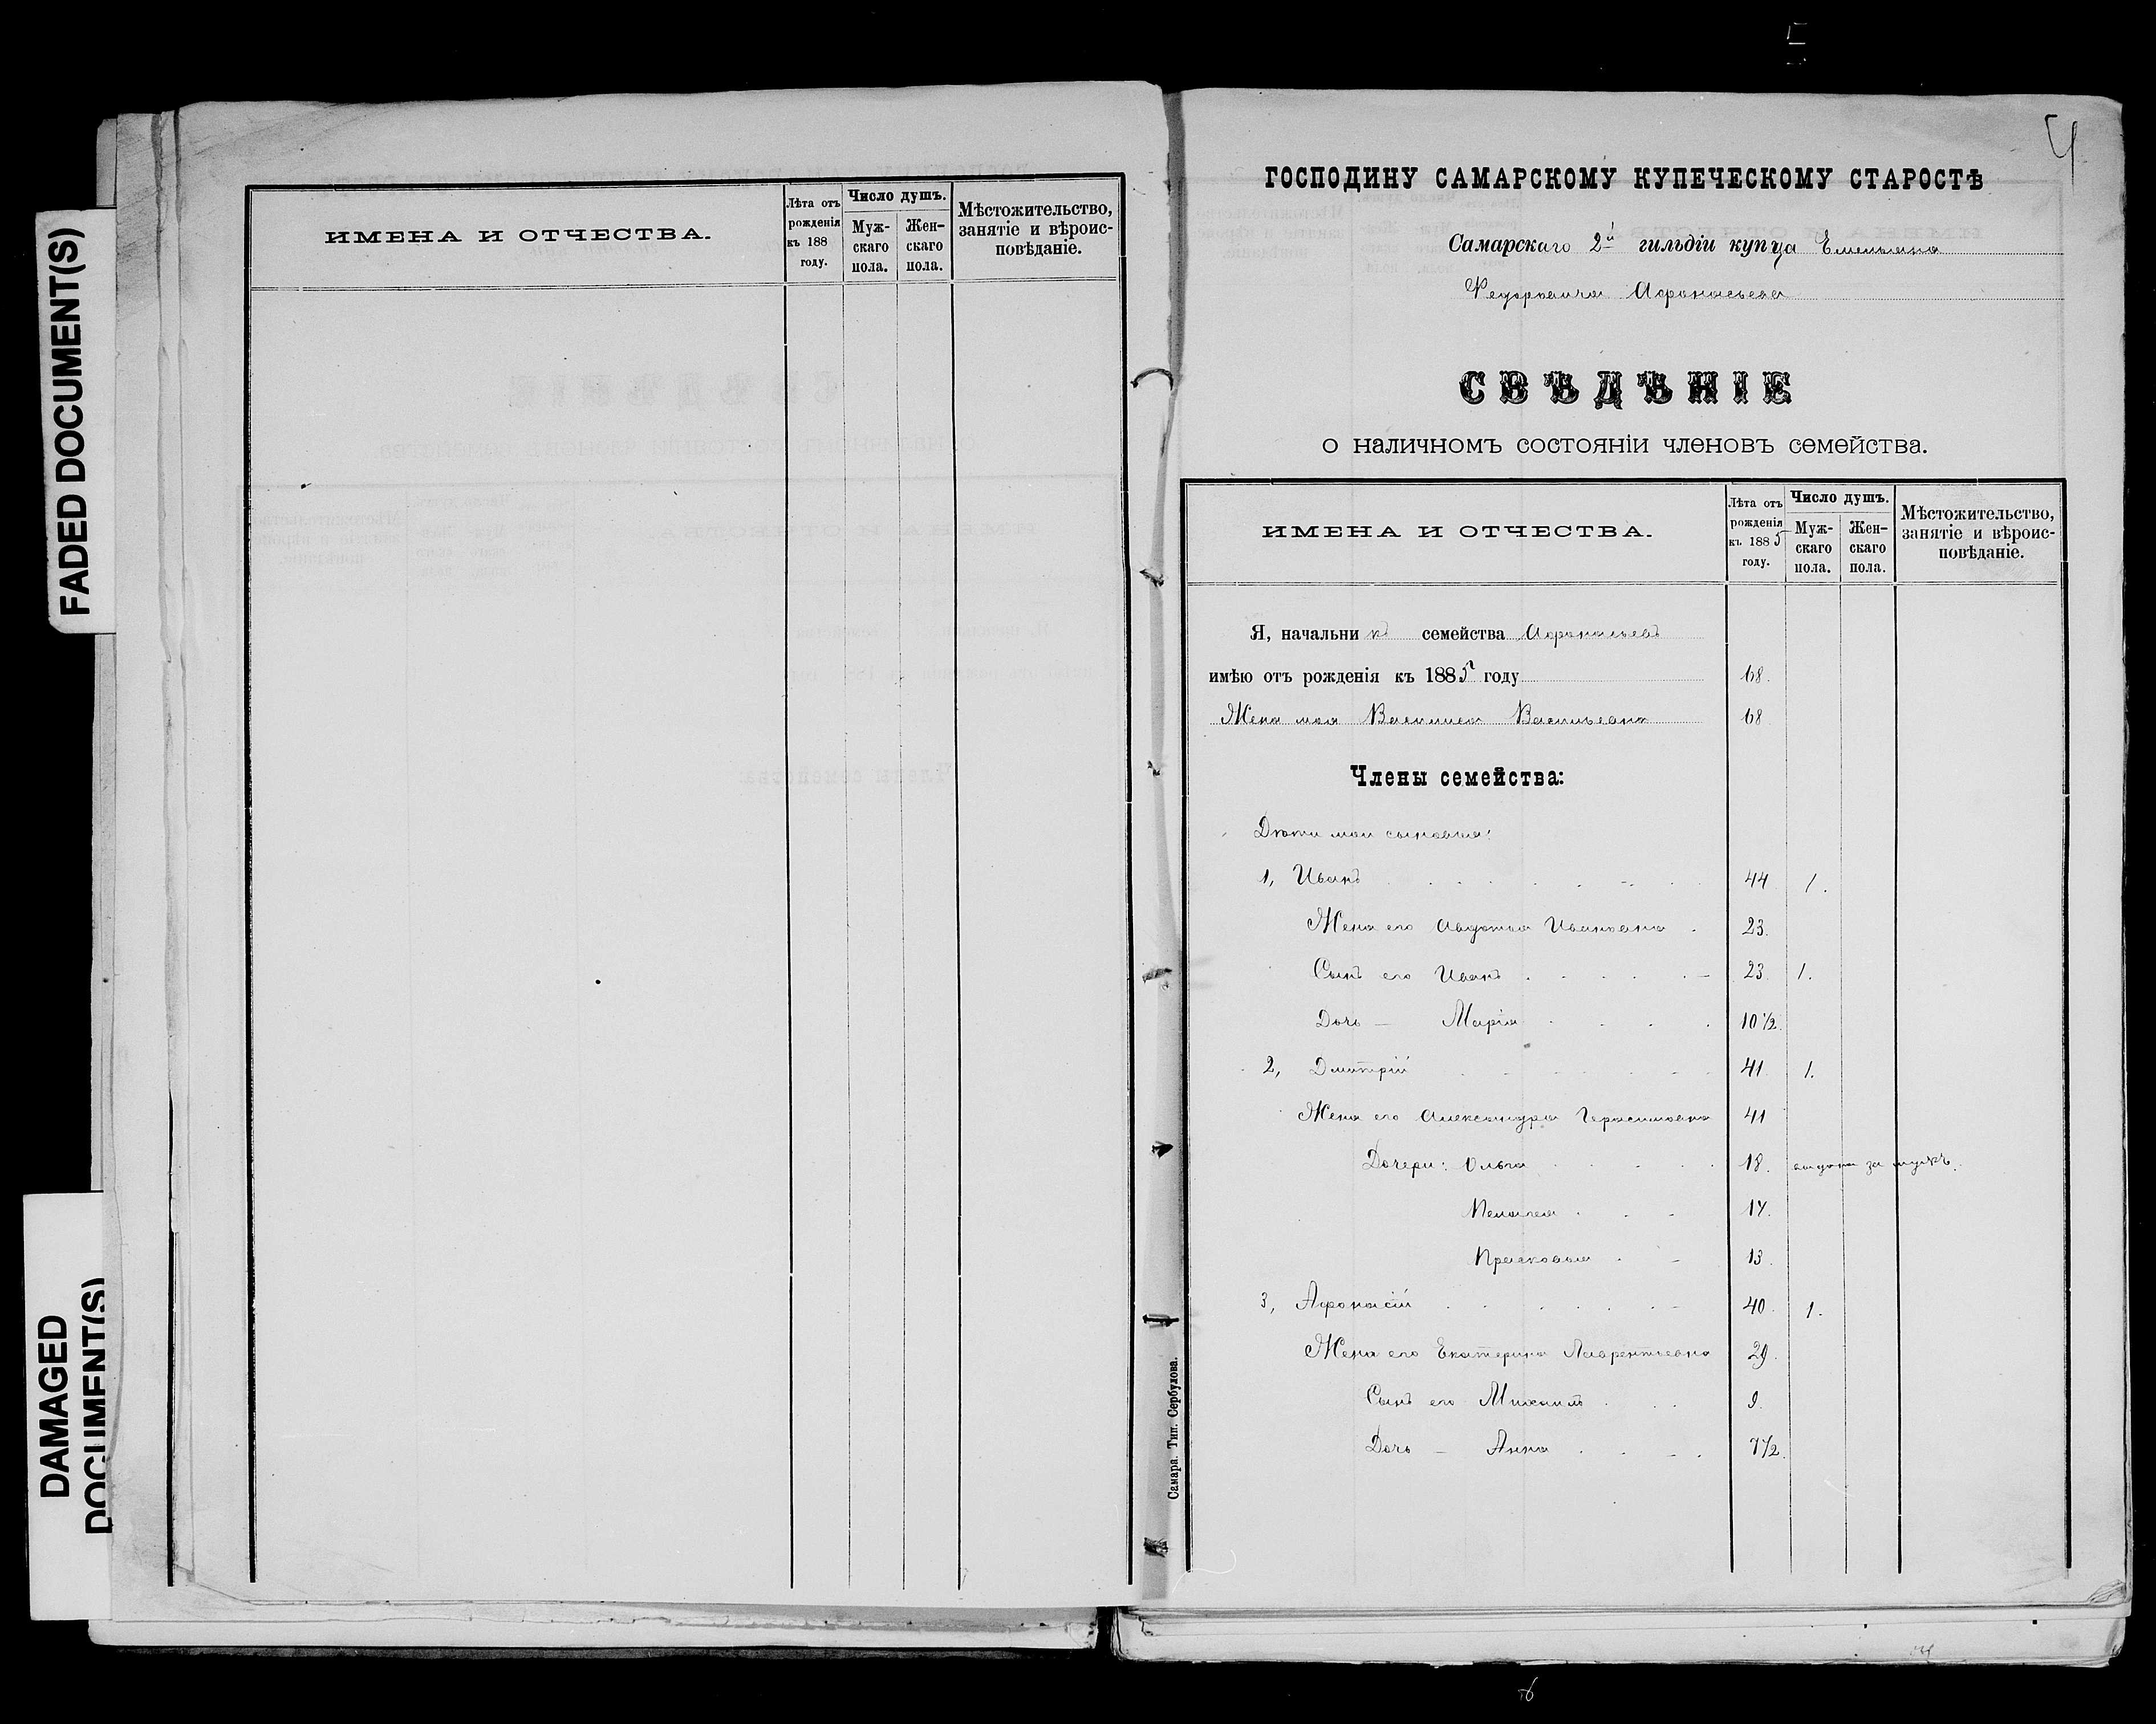 FADED DOCUMENT(S)
DAMAGED
DOCUMENT(S)
ИМЕНА И ОТЧЕСТВА.
Лѣта отъ рожденія къ 188 году.
Число душъ.
Мужскаго пола.
Женскаго пола.
Мѣстожительство, занятіе и вѣроисповѣданіе.
4
ГОСПОДИНУ САМАРСКОМУ КУПЕЧЕСКОМУ СТАРОСТѢ
Самарскаго 2й гильдіи купца Емельяна
Федоровича Афонасьева
СВѢДѢНІЕ
о наличномъ состояніи членовъ семейства.
ИМЕНА И ОТЧЕСТВА.
Лѣта отъ рожденія къ 1885 году.
Число душъ.
Мужскаго пола.
Женскаго пола.
Мѣстожительство, занятіе и вѣроисповѣданіе.
Я, начальникъ семейства Афонасьевъ
имѣю отъ рожденія къ 1885 году 68.
Жена моя Василиса Васильевна 68
Члены семейства:
Дѣти мои сыновья:
1, Иванъ 44 1.
Жена его Авдотья Ивановна 23.
Сынъ его Иванъ 23 1.
Дочь — Марія 10 1/2.
2, Дмитрій 41 1.
Жена его Александра Герасимовна 41
Дочери: Ольга 18. выдана за мужъ.
Пелагея 14.
Прасковья 13.
3, Афонасій 40. 1.
Жена его Екатерина Лаврентьевна 29.
Сынъ его Михаилъ 9.
Дочь — Анна 7 1/2.
Самара. Тип. Сербулова.